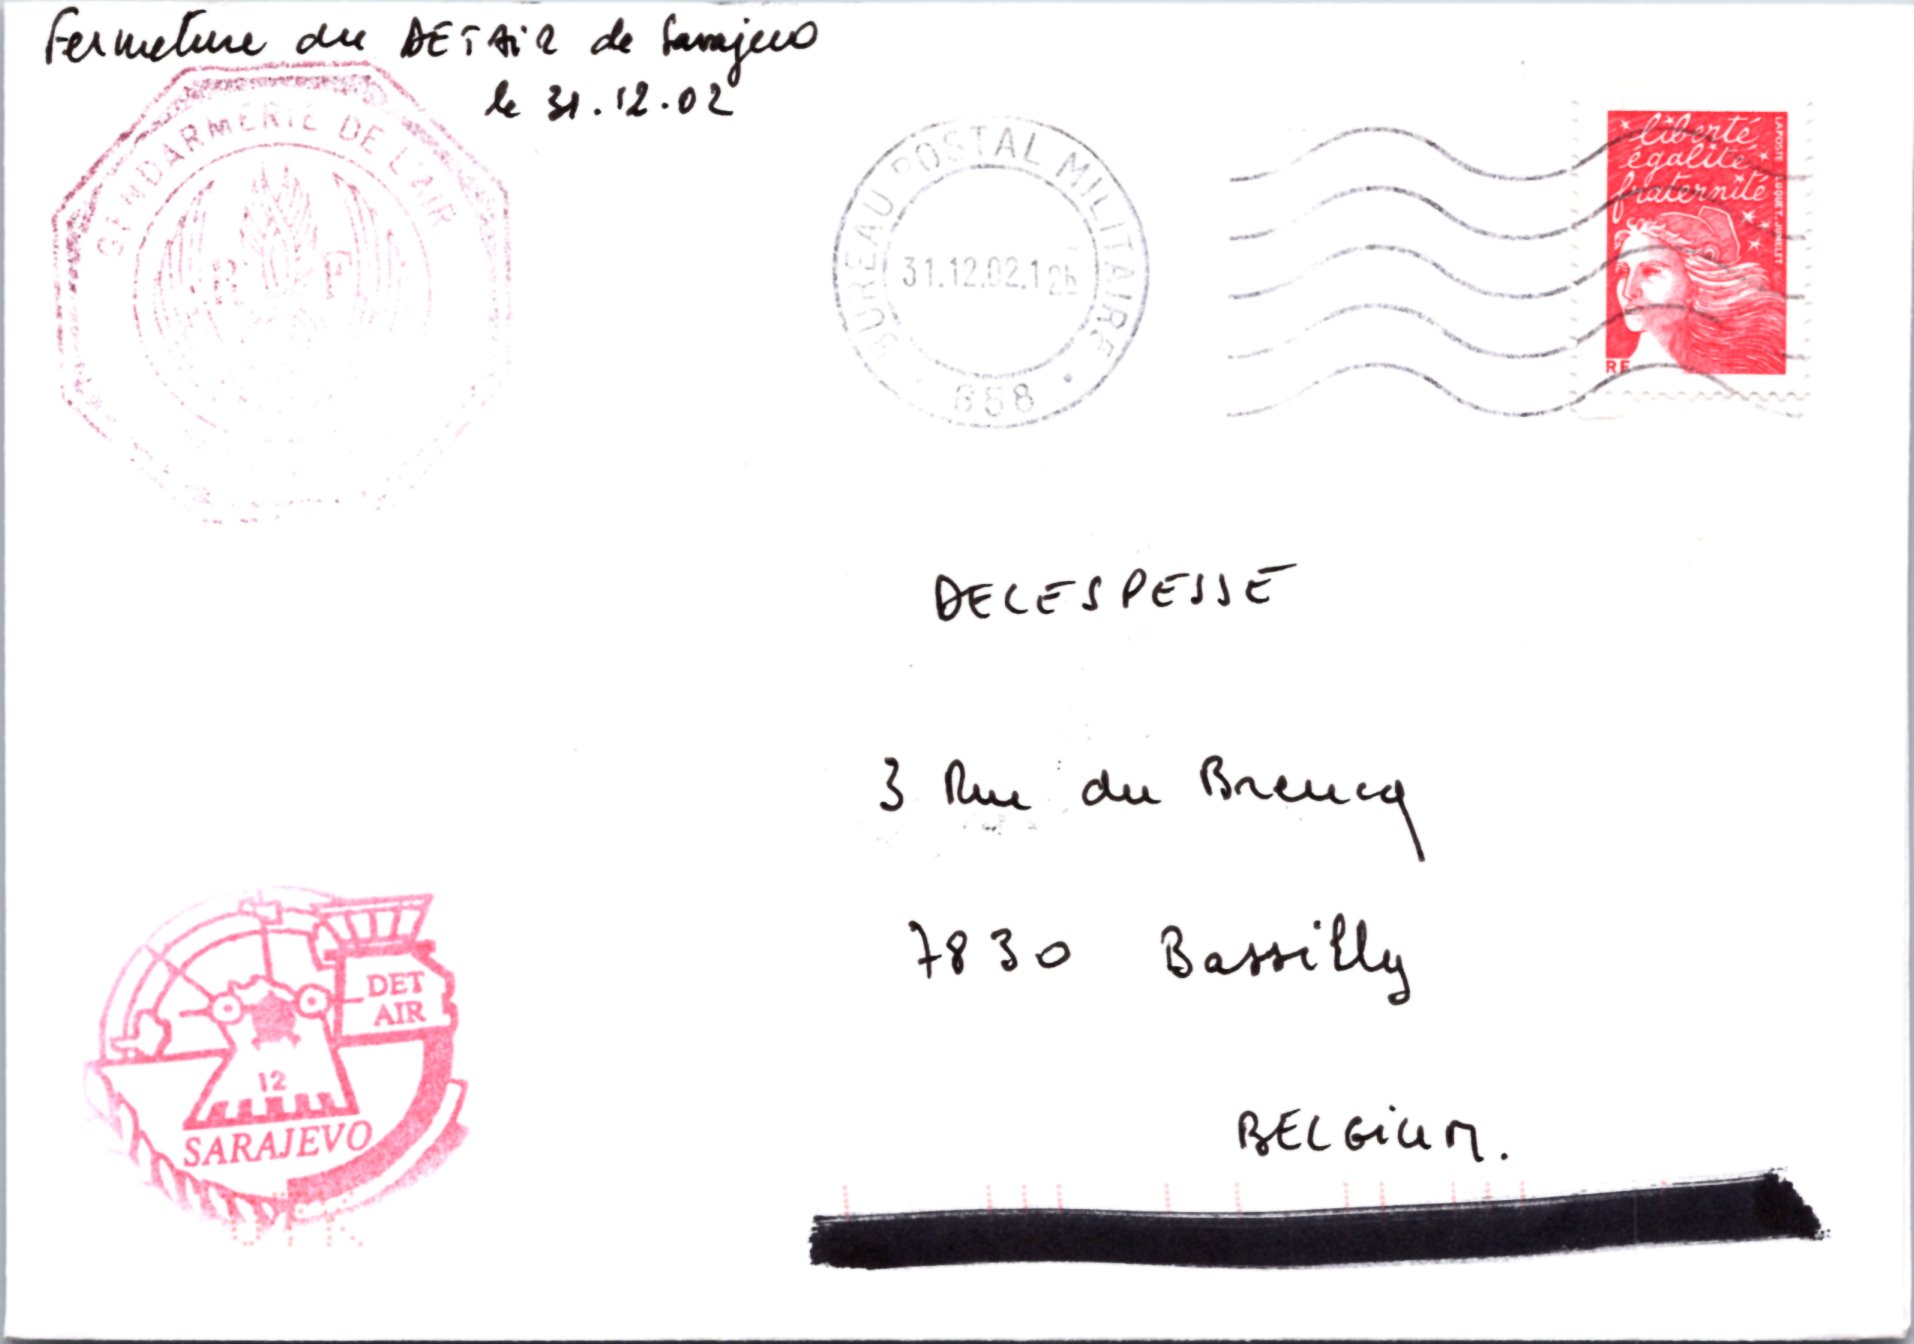 Fermeture du DETAIR de Sarajevo
le 31.12.02
GENDARMERIE DE L'AIR
R F
BUREAU POSTAL MILITAIRE
31.12.02.12h
658
liberté
égalité
fraternité
LA POSTE LUQUET, JUMELET
RF
DELESPESSE
3 Rue du Breucq
7830 Bassilly
BELGIUM.
DET
AIR
12
SARAJEVO